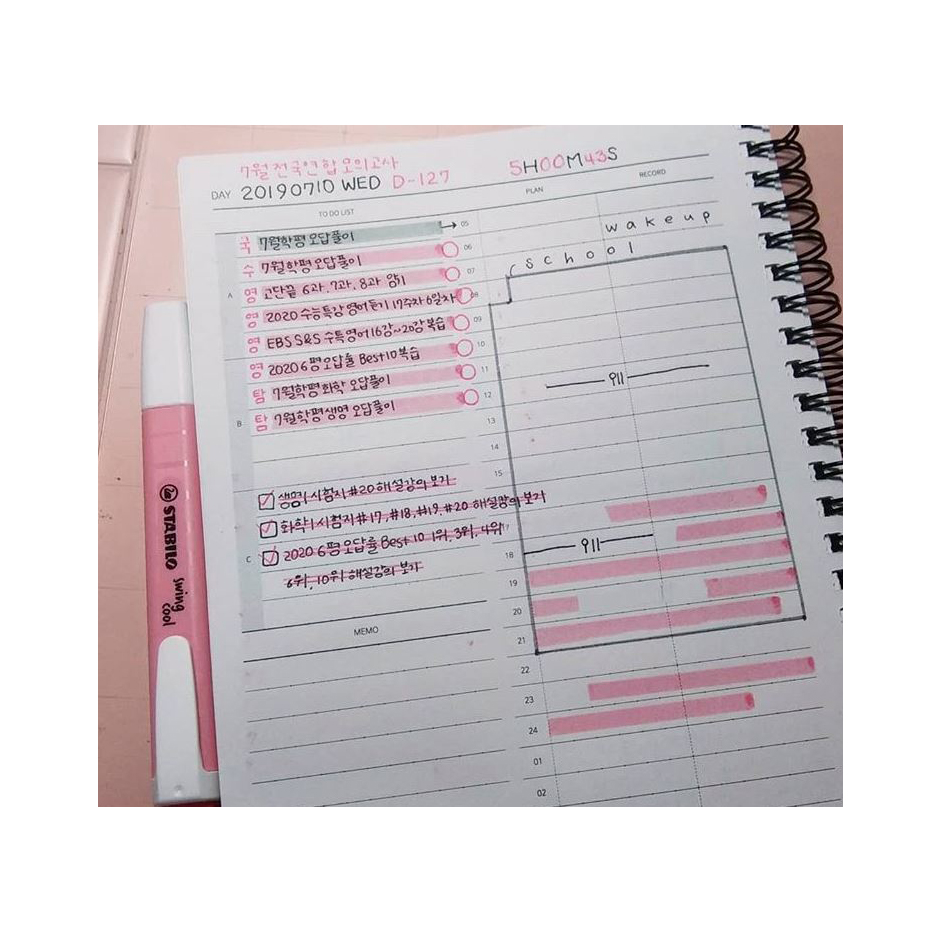 7월 전국연합모의고사
DAY 20190710 WED D-127
5H00M43S
TO DO LIST
PLAN
RECORD
국 7월학평 오답풀이
수 7월학평 오답풀이
A
영 고단끝 6과, 7과, 8과 암기
영 2020 수능특강 영어듣기 17주차 6일차
영 EBS S&S 수특영어 16강~20강 복습
영 2020 6평 오답률 Best 10 복습
탐 7월학평 화학 오답풀이
B
탐 7월학평 생명 오답풀이
생명 시험지 #20 해설강의 보기
화학 시험지 #17, #18, #19, #20 해설강의 보기
C
2020 6평 오답률 Best 10 1위, 3위, 4위
6위, 10위 해설강의 보기
MEMO
05
wakeup
06
school
07
08
09
10
11
밥
12
13
15
17
18
밥
19
20
21
22
23
24
01
02
STABILO
swing
cool